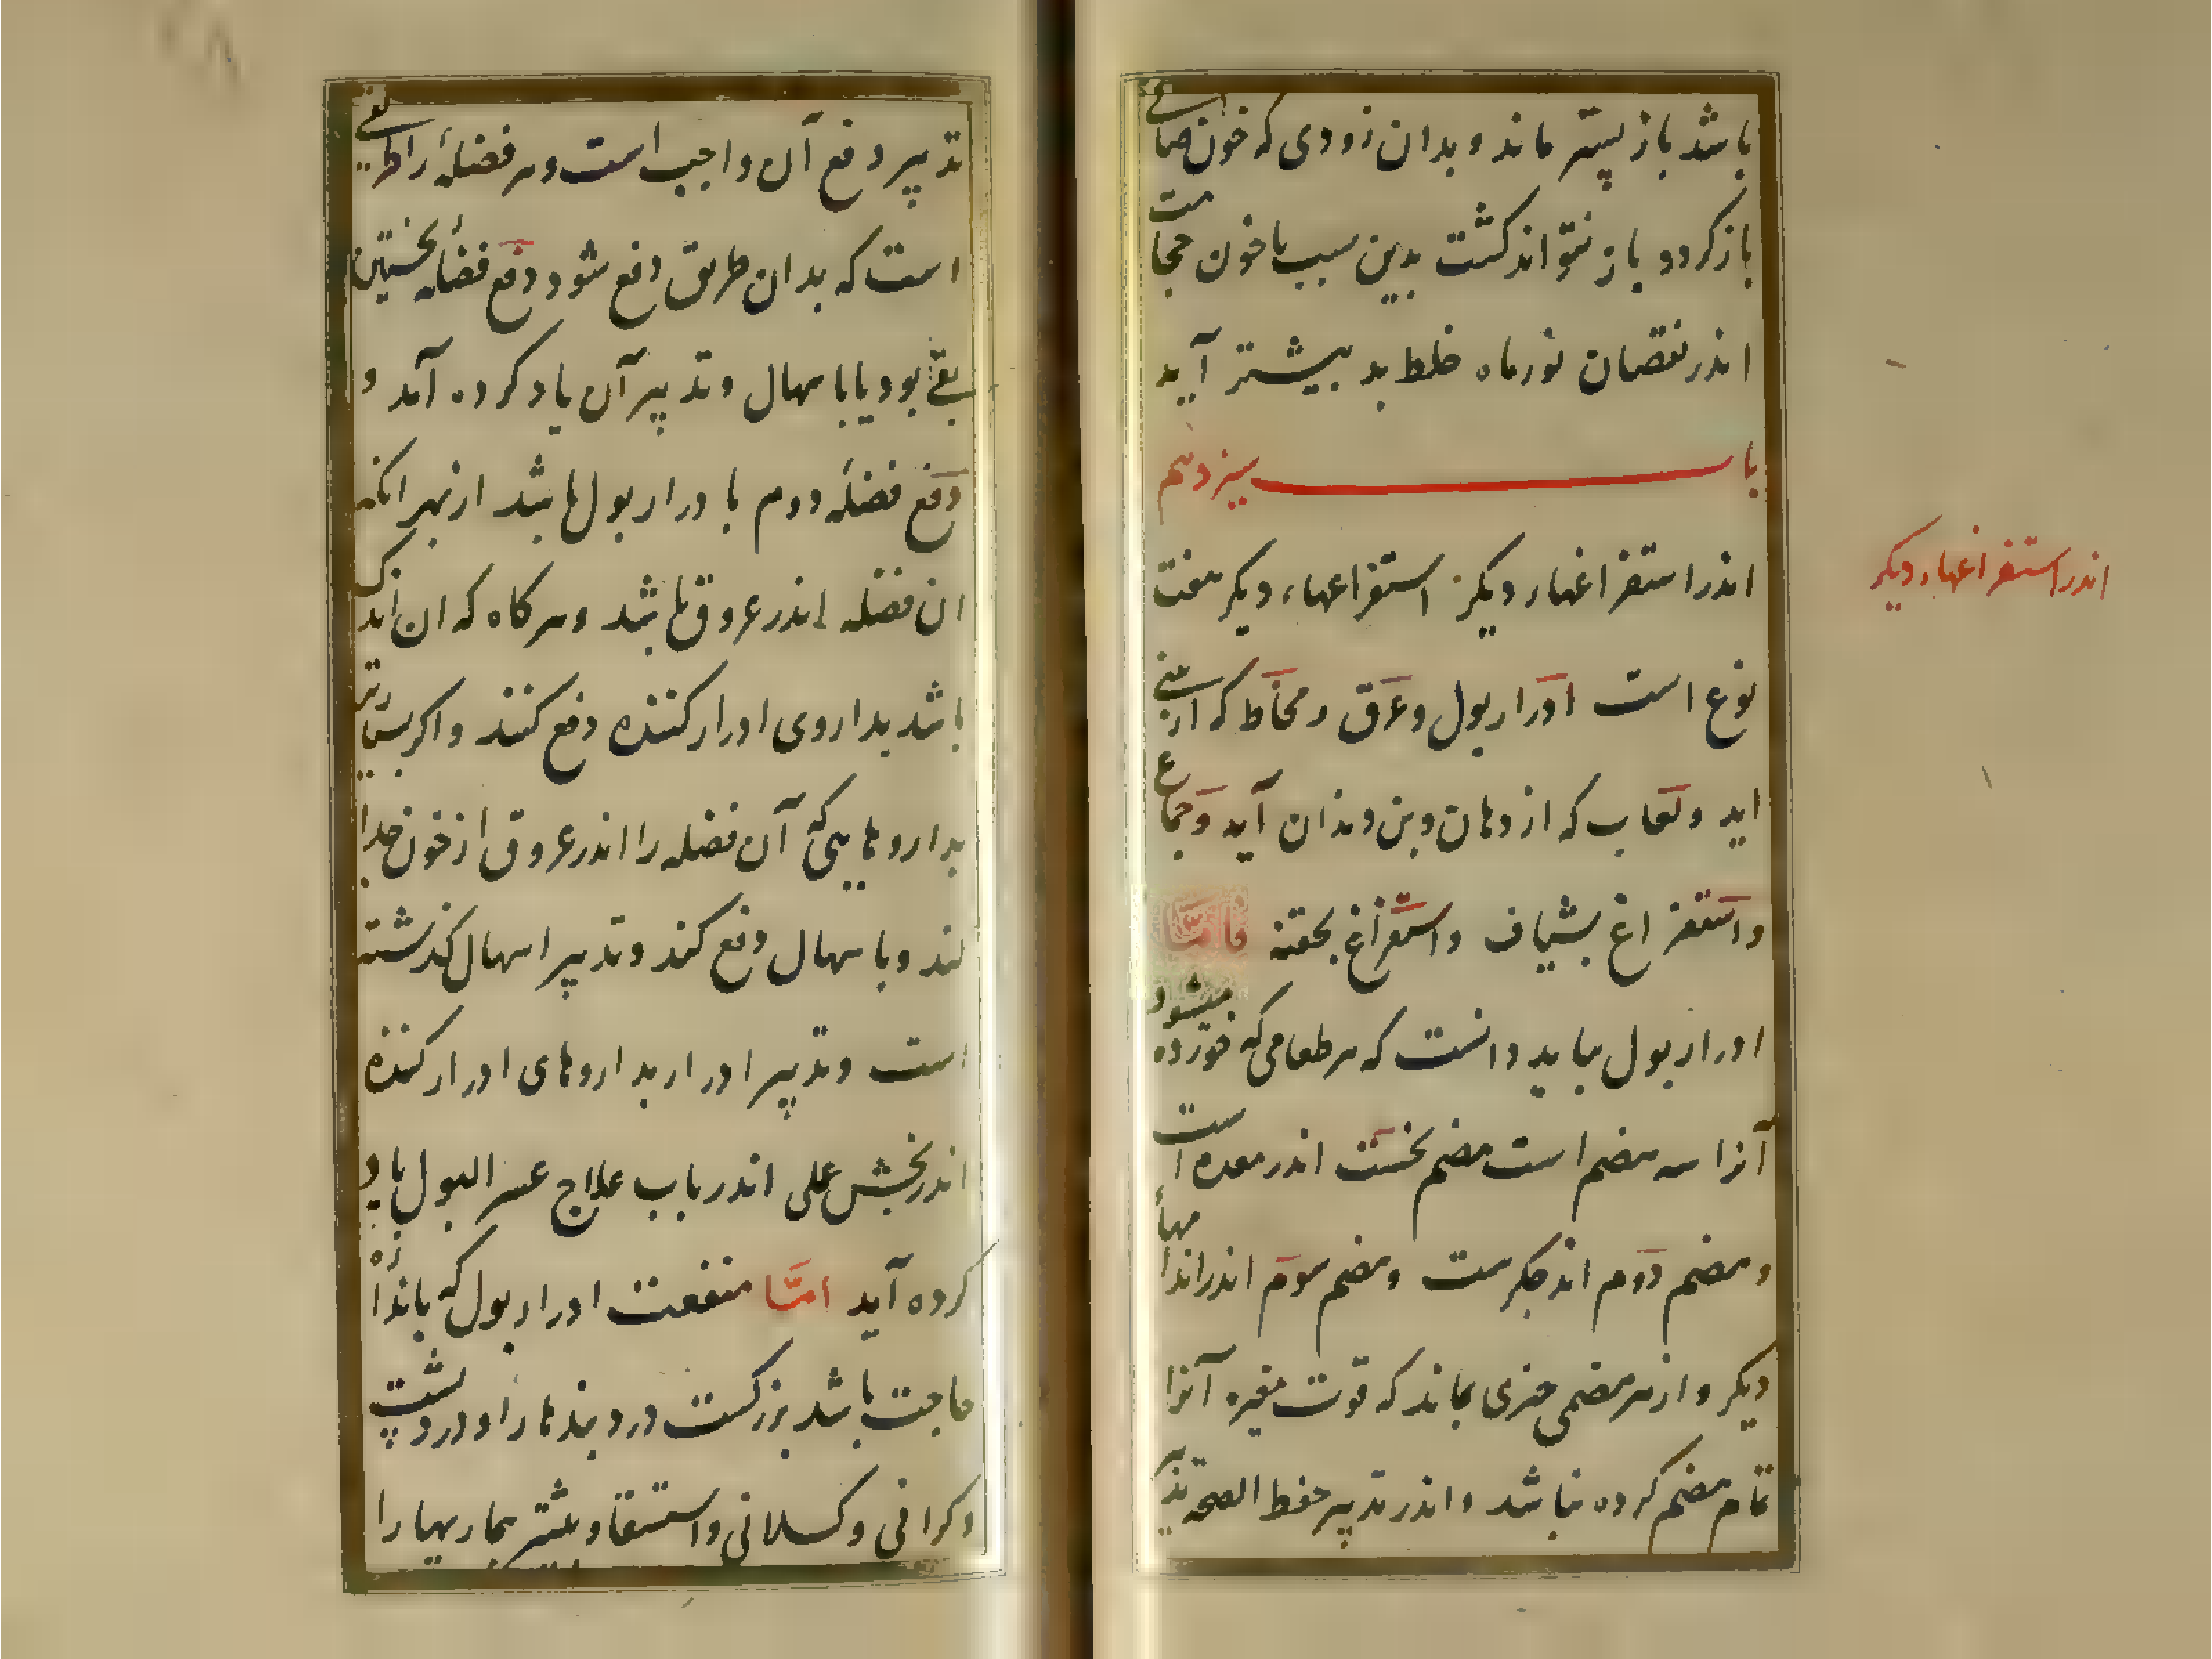 باشد باز پستر ماند و بدان زودی که خون صافی
بازکردد باز نتواند کشت بدین سبب با خون حجامت
اندر نقصان نور ماه خلط بد بیشتر آید
باب سیزدهم
اندر استفراغهاء دیکر
اندر استفراغهاء دیکر استفراغهاء دیکر هفت
نوع است ادرار بول و عرق و مخاط که از بینی
اید و لعاب که از دهان و بن دندان آید و جماع
و استفراغ بشیاف و استفراغ بحقنه فامّا
ادرار بول بباید دانست که هر طعامی که خورده میشود
آنرا سه هضم است هضم نخست اندر معده است
و هضم دوم اندر جکرست و هضم سوم اندر اندامها
دیکر و از هر هضمی چیزی بماند که قوت مغیره آنرا
تمام هضم کرده نباشد و اندر تدبیر حفظ الصحه تدبیر
تدبیر دفع آن واجب است و هر فضلهٔ را طریقی
است که بدان طریق دفع شود دفع فضلهٔ نخستین
بقی بود یا باسهال و تدبیر آن یاد کرده آمد و
دفع فضلهٔ دوم بادرار بول باشد از بهر انکه
ان فضله اندر عروق باشد و هر کاه که ان اندک
باشد بداروی ادرار کننده دفع کنند و اکر بسیارتر
بداروهایی که آن فضله را اندر عروق از خون جدا
کند و باسهال دفع کند و تدبیر اسهال کذشته
است و تدبیر ادرار بداروهای ادرار کننده
اندر بخش علی اندر باب علاج عسر البول یاد
کرده آید امّا منفعت ادرار بول که باندازه
حاجت باشد بزرکست درد بندها را و درد پشت
و کرانی و کسلانی و استسقا و بیشتر بیماریها را